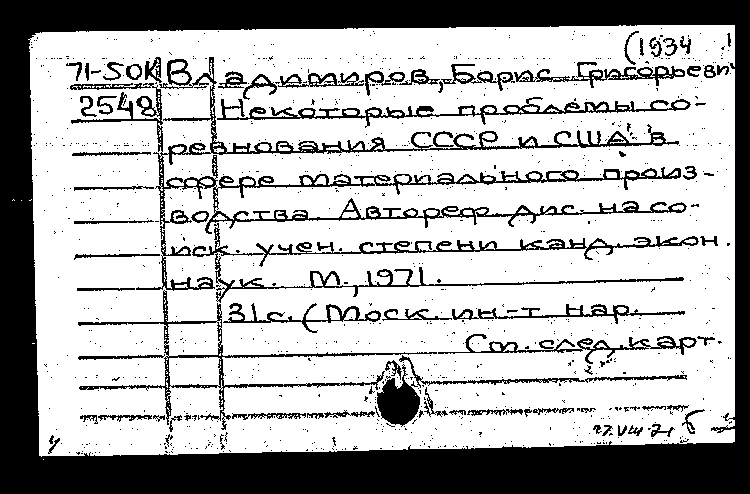 (1934
71-50K Владимиров, Борис Григорьевич
2548 Некоторые проблемы со-
ревнования СССР и США в
сфере материального произ-
водства. Автореф. дис. на со-
иск. учен. степени канд. экон.
наук. М., 1971.
31 с. (Моск. ин-т нар.
См. след. карт.